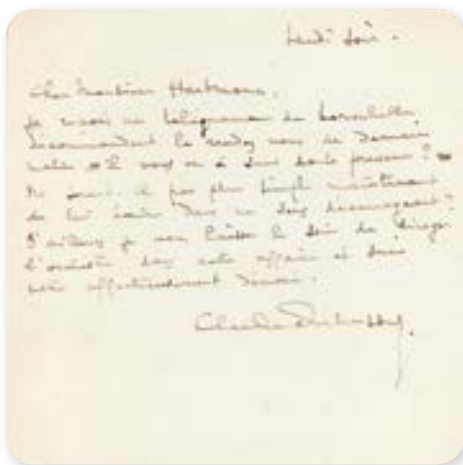 Lundi soir.
Cher Monsieur Hartmann,
Je reçois un télégramme de
décommandant le rendez vous de demain
il vous en a sans doute prévenu ?
Ne serait-il pas plus simple maintenant
de lui écrire dans un sens décourageant ?
D'ailleurs je vous laisse le soin de diriger
l'orchestre dans cette affaire et suis
votre affectueusement dévoué.
Claude Debussy.